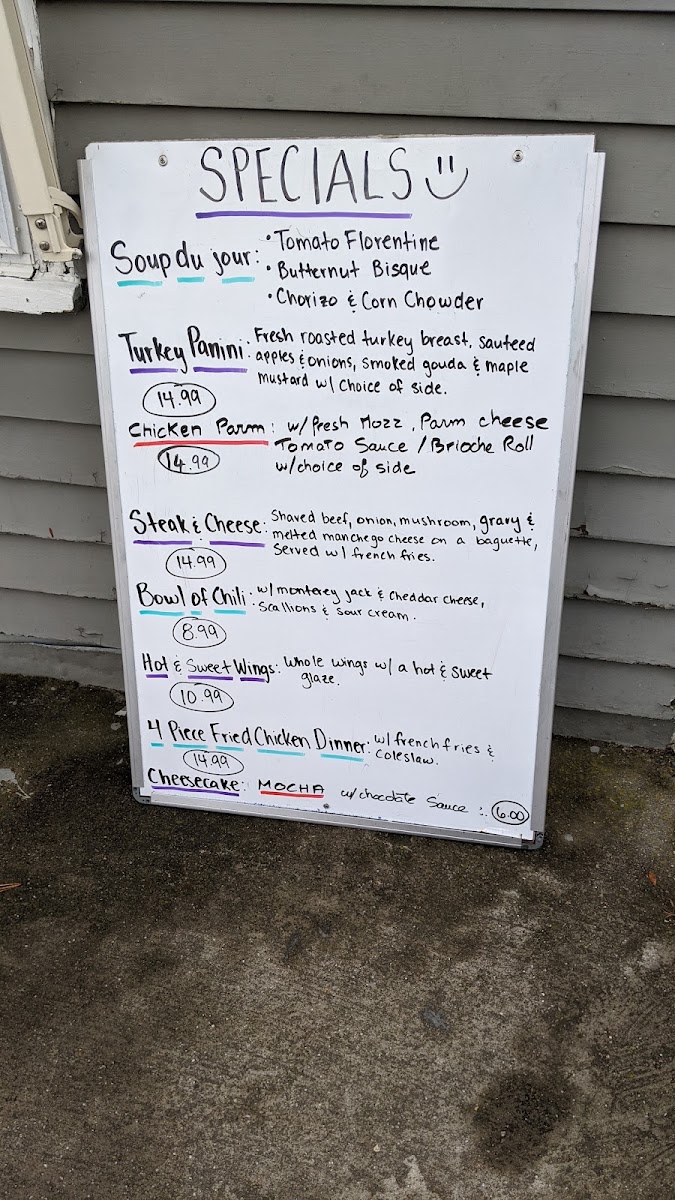 SPECIALS
Soup du jour: • Tomato Florentine
• Butternut Bisque
• Chorizo & Corn Chowder
Turkey Panini: Fresh roasted turkey breast, sauteed
apples & onions, smoked gouda & maple
mustard w/ choice of side.
14.99
Chicken Parm: w/ fresh Mozz, Parm cheese
Tomato Sauce / Brioche Roll
14.99
w/choice of side
Steak & Cheese: Shaved beef, onion, mushroom, gravy &
melted manchego cheese on a baguette,
Served w/ french fries.
14.99
Bowl of Chili: w/monterey jack & cheddar cheese,
scallions & sour cream.
8.99
Hot & Sweet Wings: Whole wings w/ a hot & sweet
glaze.
10.99
4 Piece Fried Chicken Dinner: w/ french fries &
coleslaw.
14.99
Cheesecake: MOCHA w/chocolate Sauce :. 6.00